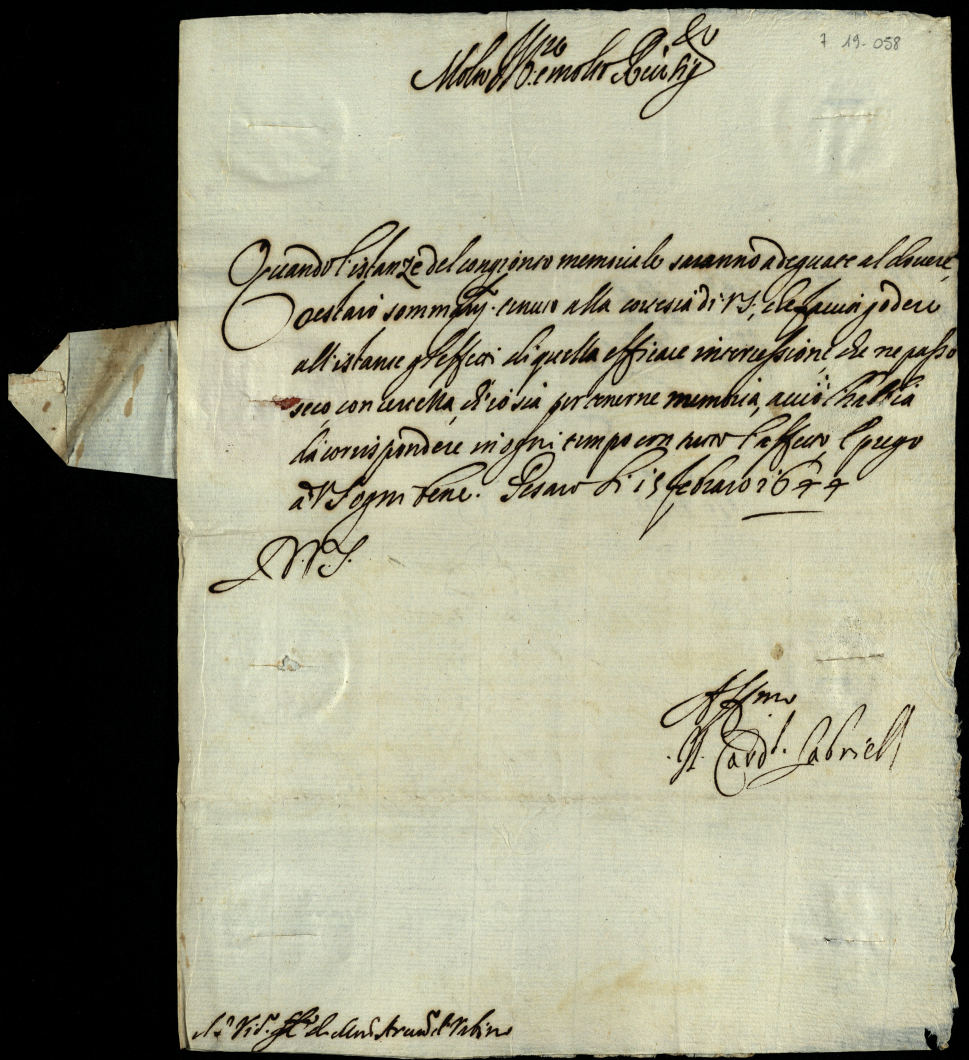 7 19-058
Molto Ill.re e molto Rev. Sig.r
Quando l'istanze del congionto memoriale saranno adeguate al dovere,
restarò sommam.te tenuto alla cortesia di V S, che facci godere
all'istante gl'effetti di quella efficace intercessione, che ne passo
seco con certezza, ch'io sia per tenerne memoria, acciò habbia
da corrispondere in ogni tempo con tutto l'affetto, e prego
à V S ogni bene. Pesaro li 15 febraro 1644
D. V. S.
Aff.mo
Il Card.l Gabrielli
Vic.